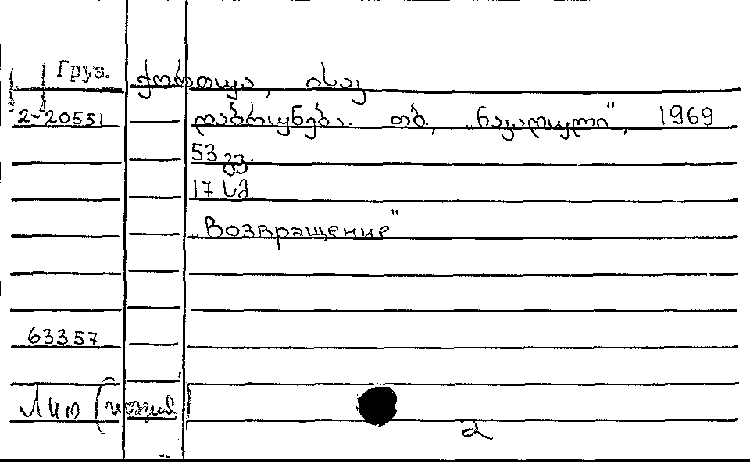 Груз. ქორთუა, ისაკ
2-20551 დაბრუნება. თბ., „ნაკადული", 1969
53 გვ.
17 სმ
„Возвращение"
63357
Лит